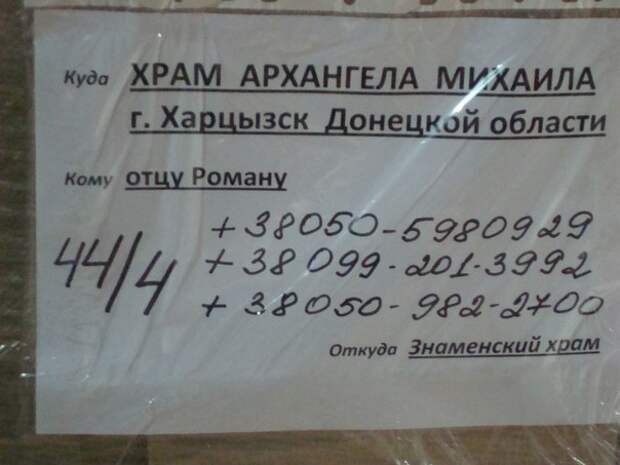 Куда ХРАМ АРХАНГЕЛА МИХАИЛА
г. Харцызск Донецкой области
Кому отцу Роману
+38050-5980929
44/4 +38099-201-3992
+38050-982-2700
Откуда Знаменский храм